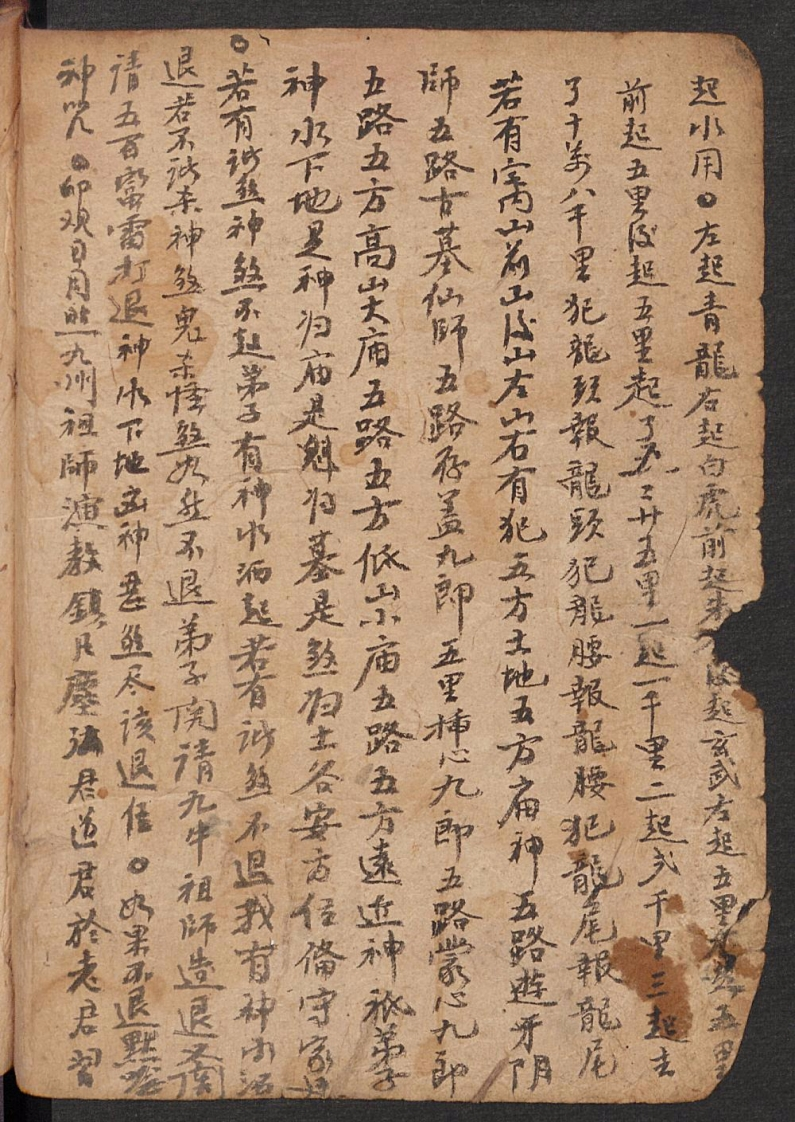 起水用○左起青龍右起白虎前起朱 後起玄武左起五里右起五里
前起五里後起五里起了 廿五里一起一千里二起弍千里三起去
了十萬八千里犯龍頭報龍頭犯龍腰報龍腰犯龍尾報龍尾
若有 山前山後山左山右有犯五方土地五方廟神五路遊牙阴
師五路古墓仙師五路存盖九郎五里揷心九郎五路蒙心九郎
五路五方高山大庙五路五方低山小庙五路五方遠近神祇弟子
神水下地是神归庙是魁归墓是煞归土谷安方位俻守家
○若有訛煞神煞不起弟子有神水洒起若有訛煞不退我有神水洒
退若不訛杀神煞鬼杀怪煞如然不退弟子闵請九牛祖師造退
請五百蛮雷打退神水下地凶神恶煞尽该退位○如果不退默唸
神咒○卯观日月照九州祖師演教鎮凡塵 君道君於老君習